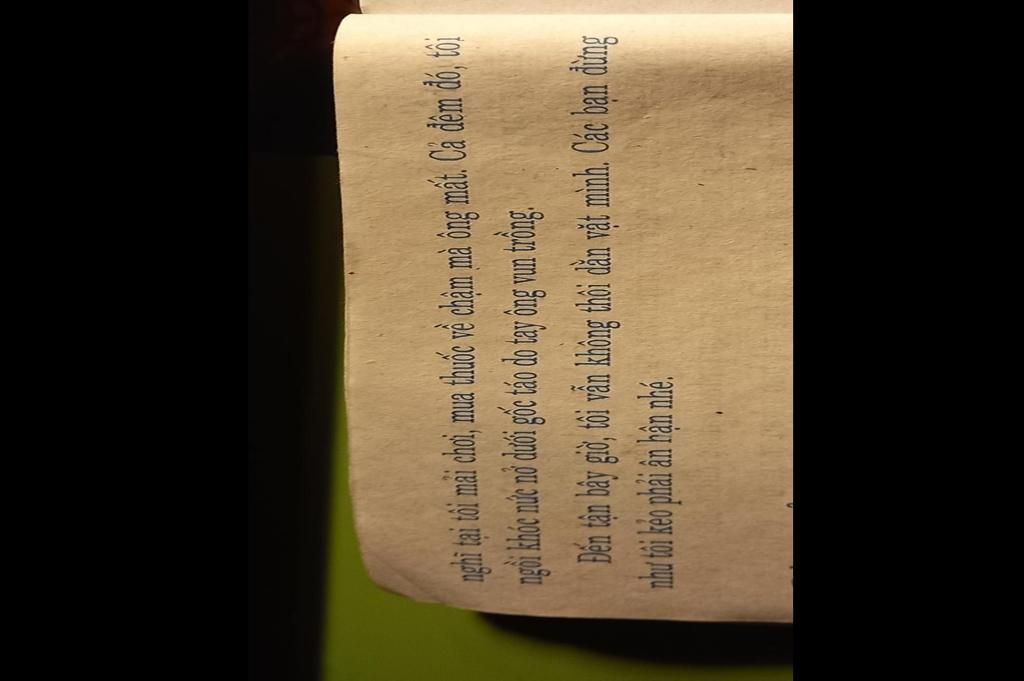 nghĩ tại tôi mải chơi, mua thuốc về chậm mà ông mất. Cả đêm đó, tôi
ngồi khóc nức nở dưới gốc táo do tay ông vun trồng.
Đến tận bây giờ, tôi vẫn không thôi dằn vặt mình. Các bạn đừng
như tôi kẻo phải ân hận nhé.